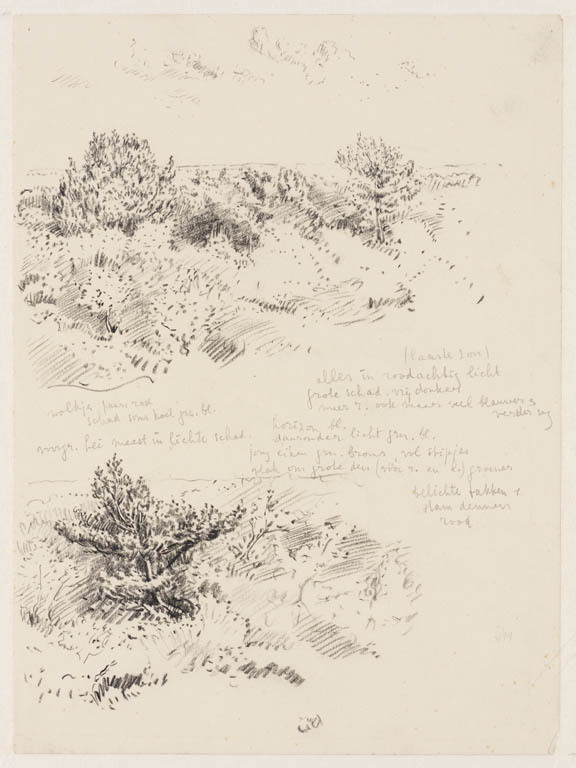 (laatste zon)
alles in roodachtig licht
grote schad. vrij donker
meer r. ook maar veel blauwer
verder weg
wolkje paars rood
schad soms koel grs. bl.
horizon bl.
daaronder licht grs. bl.
voorgr. hei meest in lichte schad.
jong eiken grs. brons, vol stipjes
plek om grote den (vóór r. en l.) groener
belichte takken +
stam dennen
rood